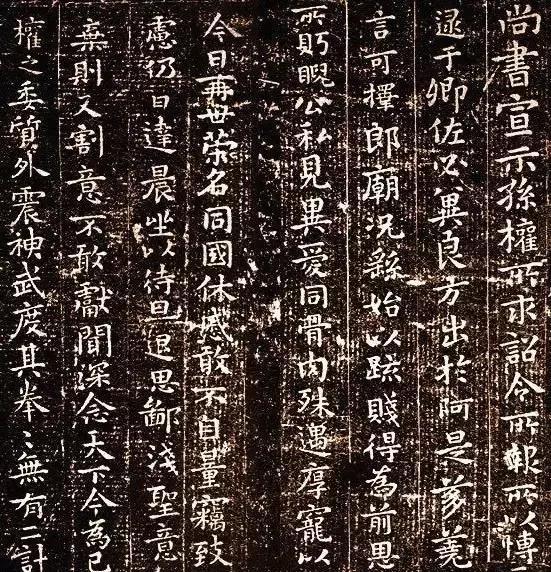 尚書宣示孫權所求詔令所報所以博
逮于卿佐必冀良方出於阿是芻蕘
言可擇郎廟況繇始以疏賤得為前恩
所眄睨公私見異愛同骨肉殊遇厚寵以
今日再世榮名同國休慼敢不自量竊致
慮仍日達晨坐以待旦退思鄙淺聖意
棄則又割意不敢獻聞深念天下今為已
權之委質外震神武度其拳〻無有二計